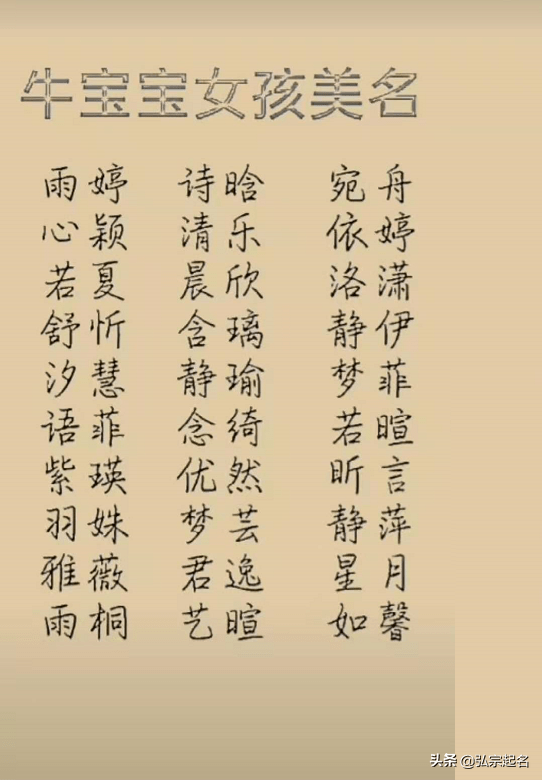 牛宝宝女孩美名
雨婷 诗晗 宛舟
心颖 清乐 依婷
若夏 晨欣 洛潇
舒忻 含璃 静伊
汐慧 静瑜 梦菲
语菲 念绮 若暄
紫瑛 优然 昕言
羽姝 梦芸 静萍
雅薇 君逸 星月
雨桐 艺暄 如馨
头条 @弘宗起名